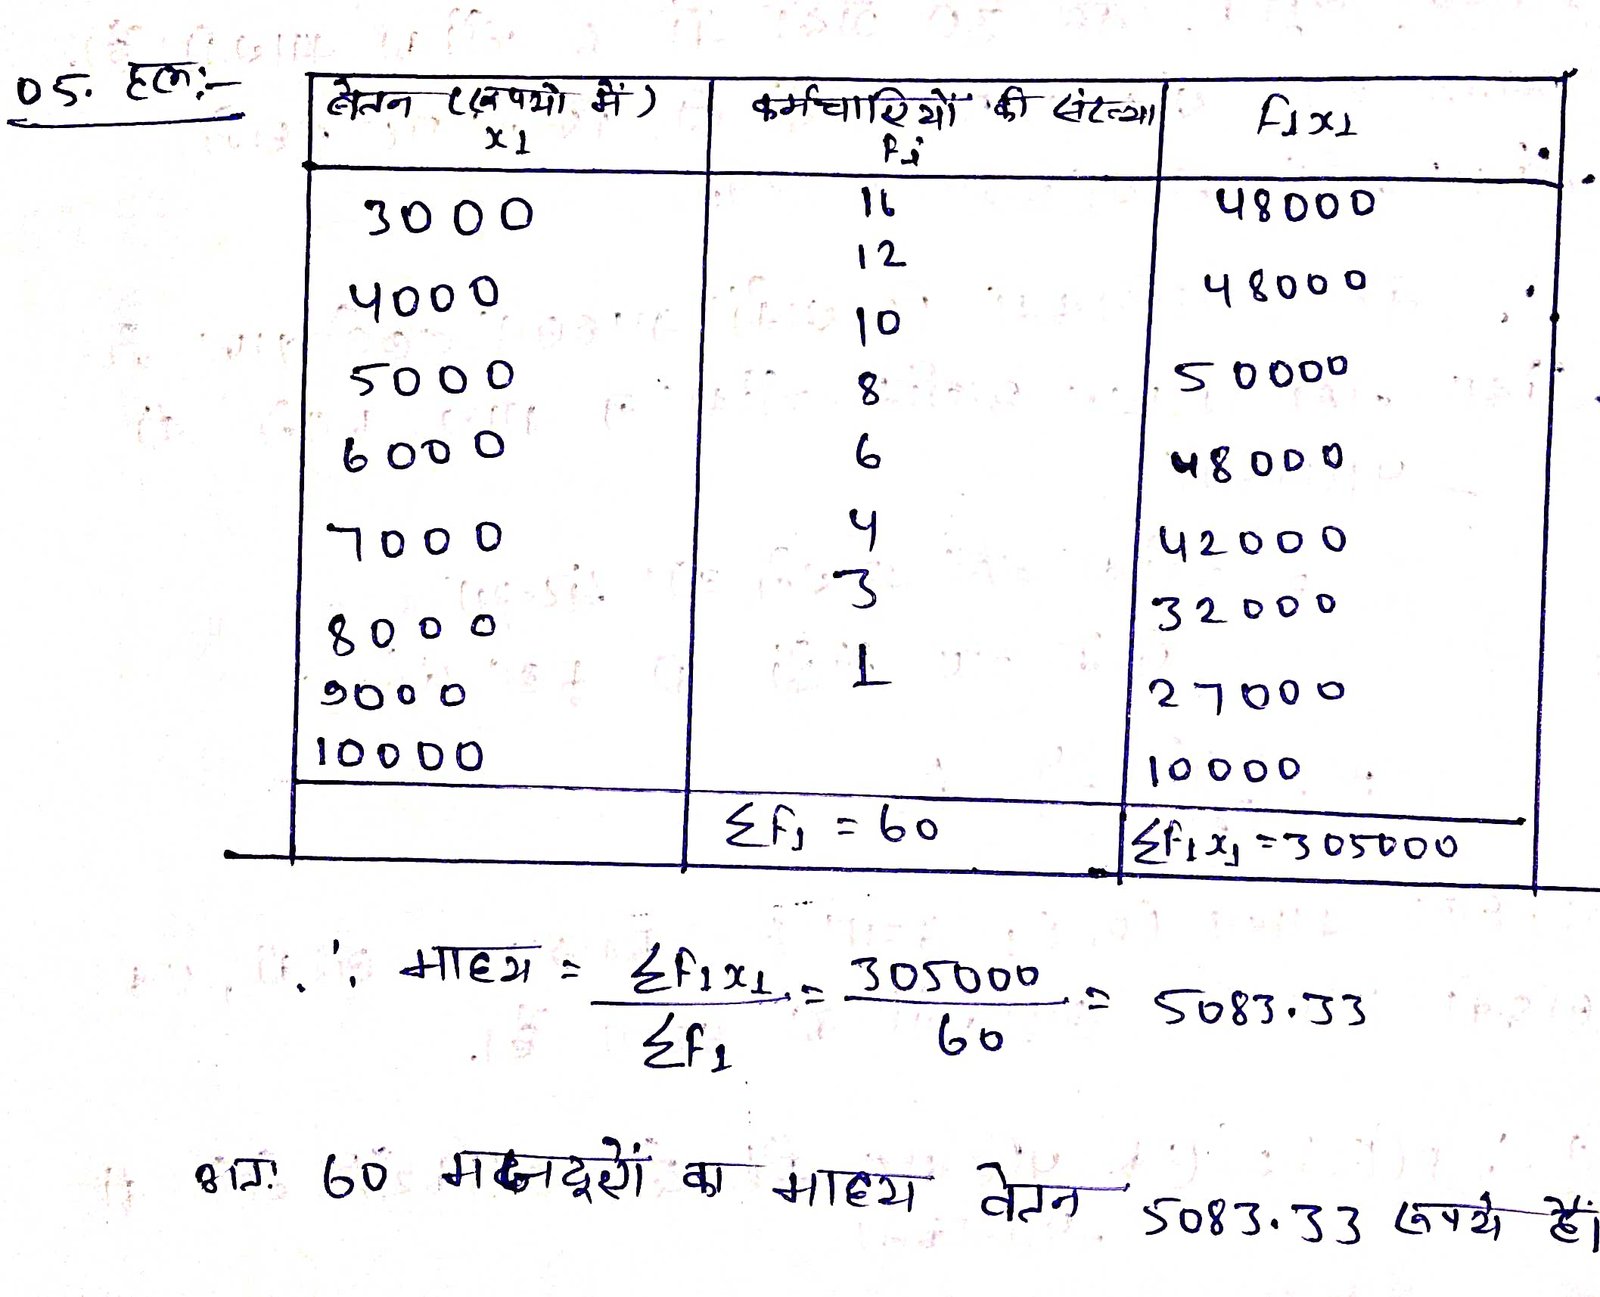 05. हल:-
वेतन (रूपयों में) x1 कर्मचारियों की संख्या fi f1x1
3000 16 48000
4000 12 48000
5000 10 50000
6000 8 48000
7000 6 42000
8000 4 32000
9000 3 27000
10000 1 10000
Σf1 = 60 Σf1x1 = 305000
∴ माध्य = Σf1x1 / Σf1 = 305000 / 60 = 5083.33
अतः 60 मजदूरों का माध्य वेतन 5083.33 रूपये है।